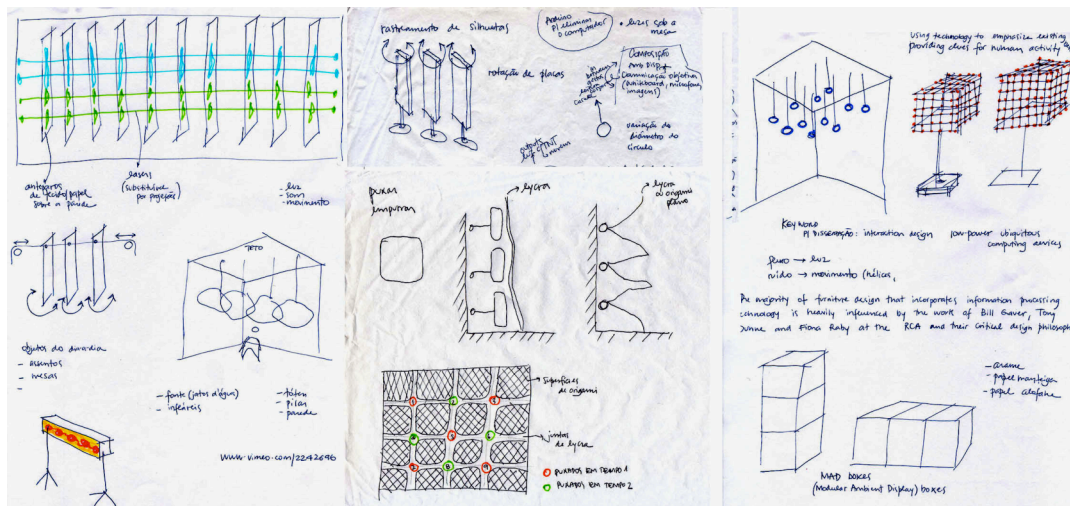 anteparos
de tecido/papel
sobre a parede
lasers
(substituível
por projeção)
- luz
- som
- movimento
TETO
objetos do dia-a-dia
- assentos
- mesas
-
- fonte (jatos d'água)
- infláveis
- tóten
- pilar
- parede
www.vimeo.com/2242696
rastreamento de silhuetas
Arduino
p/ eliminar
o computador
• luzes sob a
mesa
rotação de placas
COMPOSIÇÃO
AMB DISP +
Comunicação objetiva
(whiteboard, microfone,
imagens)
variação do
diâmetro do
círculo
puxar
empurrar
lycra
lycra
ou origami
plano
superfícies
de origami
juntas
de lycra
PUXADOS EM TEMPO 1
PUXADOS EM TEMPO 2
Using technology to emphasize existing
providing clues for human activity
KEYWORD
P/ DISSERTAÇÃO: interaction design low-power ubiquitous
computing devices
furo → luz
ruído → movimento (hélices,
The majority of furniture design that incorporates information processing
technology is heavily inferenced by the work of Bill Gaver, Tony
Dunne and Fiona Raby at the RCA and their critical design philosoph
- arame
- papel manteiga
- papel celofane
MAD boxes
(Modular Ambient Display) boxes